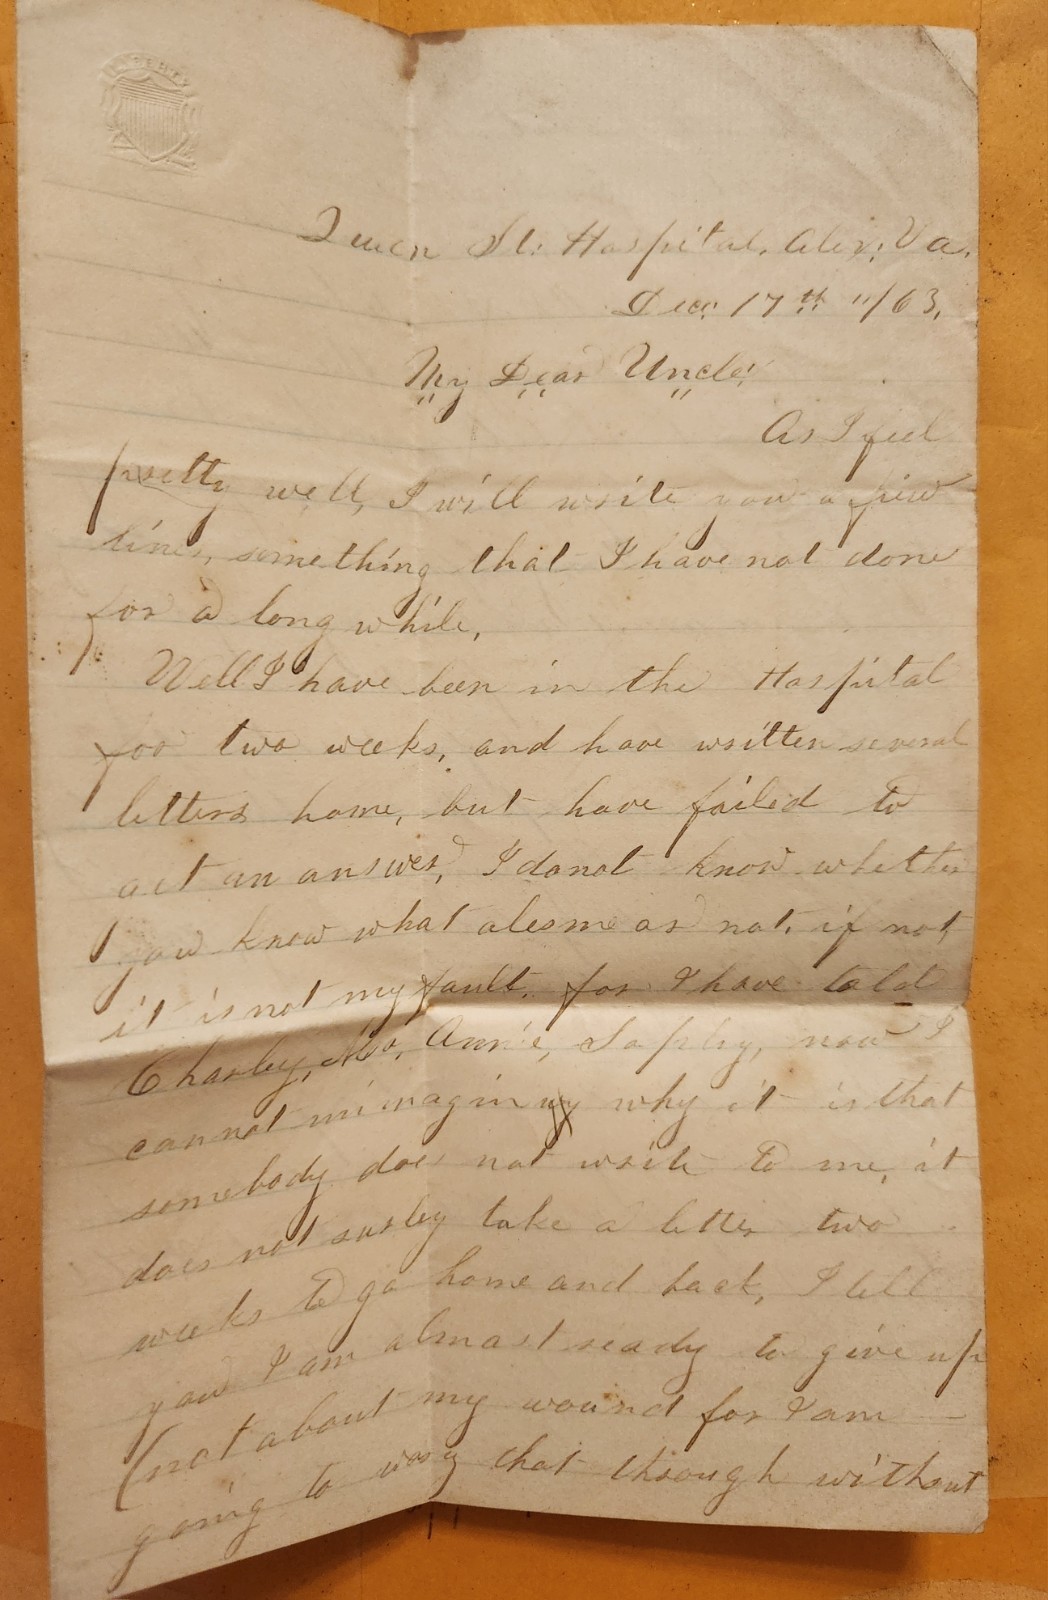 LIBERTY
Queen St: Hospital. Alex: Va.
Dec: 17th "/63.
My Dear Uncle:
As I feel
pretty well, I will write you a few
lines, something that I have not done
for a long while.
Well I have been in the Hospital
for two weeks, and have written several
letters home, but have failed to
get an answer, I do not know whether
you know what ales me or not. if not,
it is not my fault. for I have told
Charley, Annie, Sophy, now I
cannot why it is that
somebody does not write to me, it
does not surley take a letter two
weeks to go home and back, I tell
you I am almost ready to give up
(not about my wound for I am
going to that through without